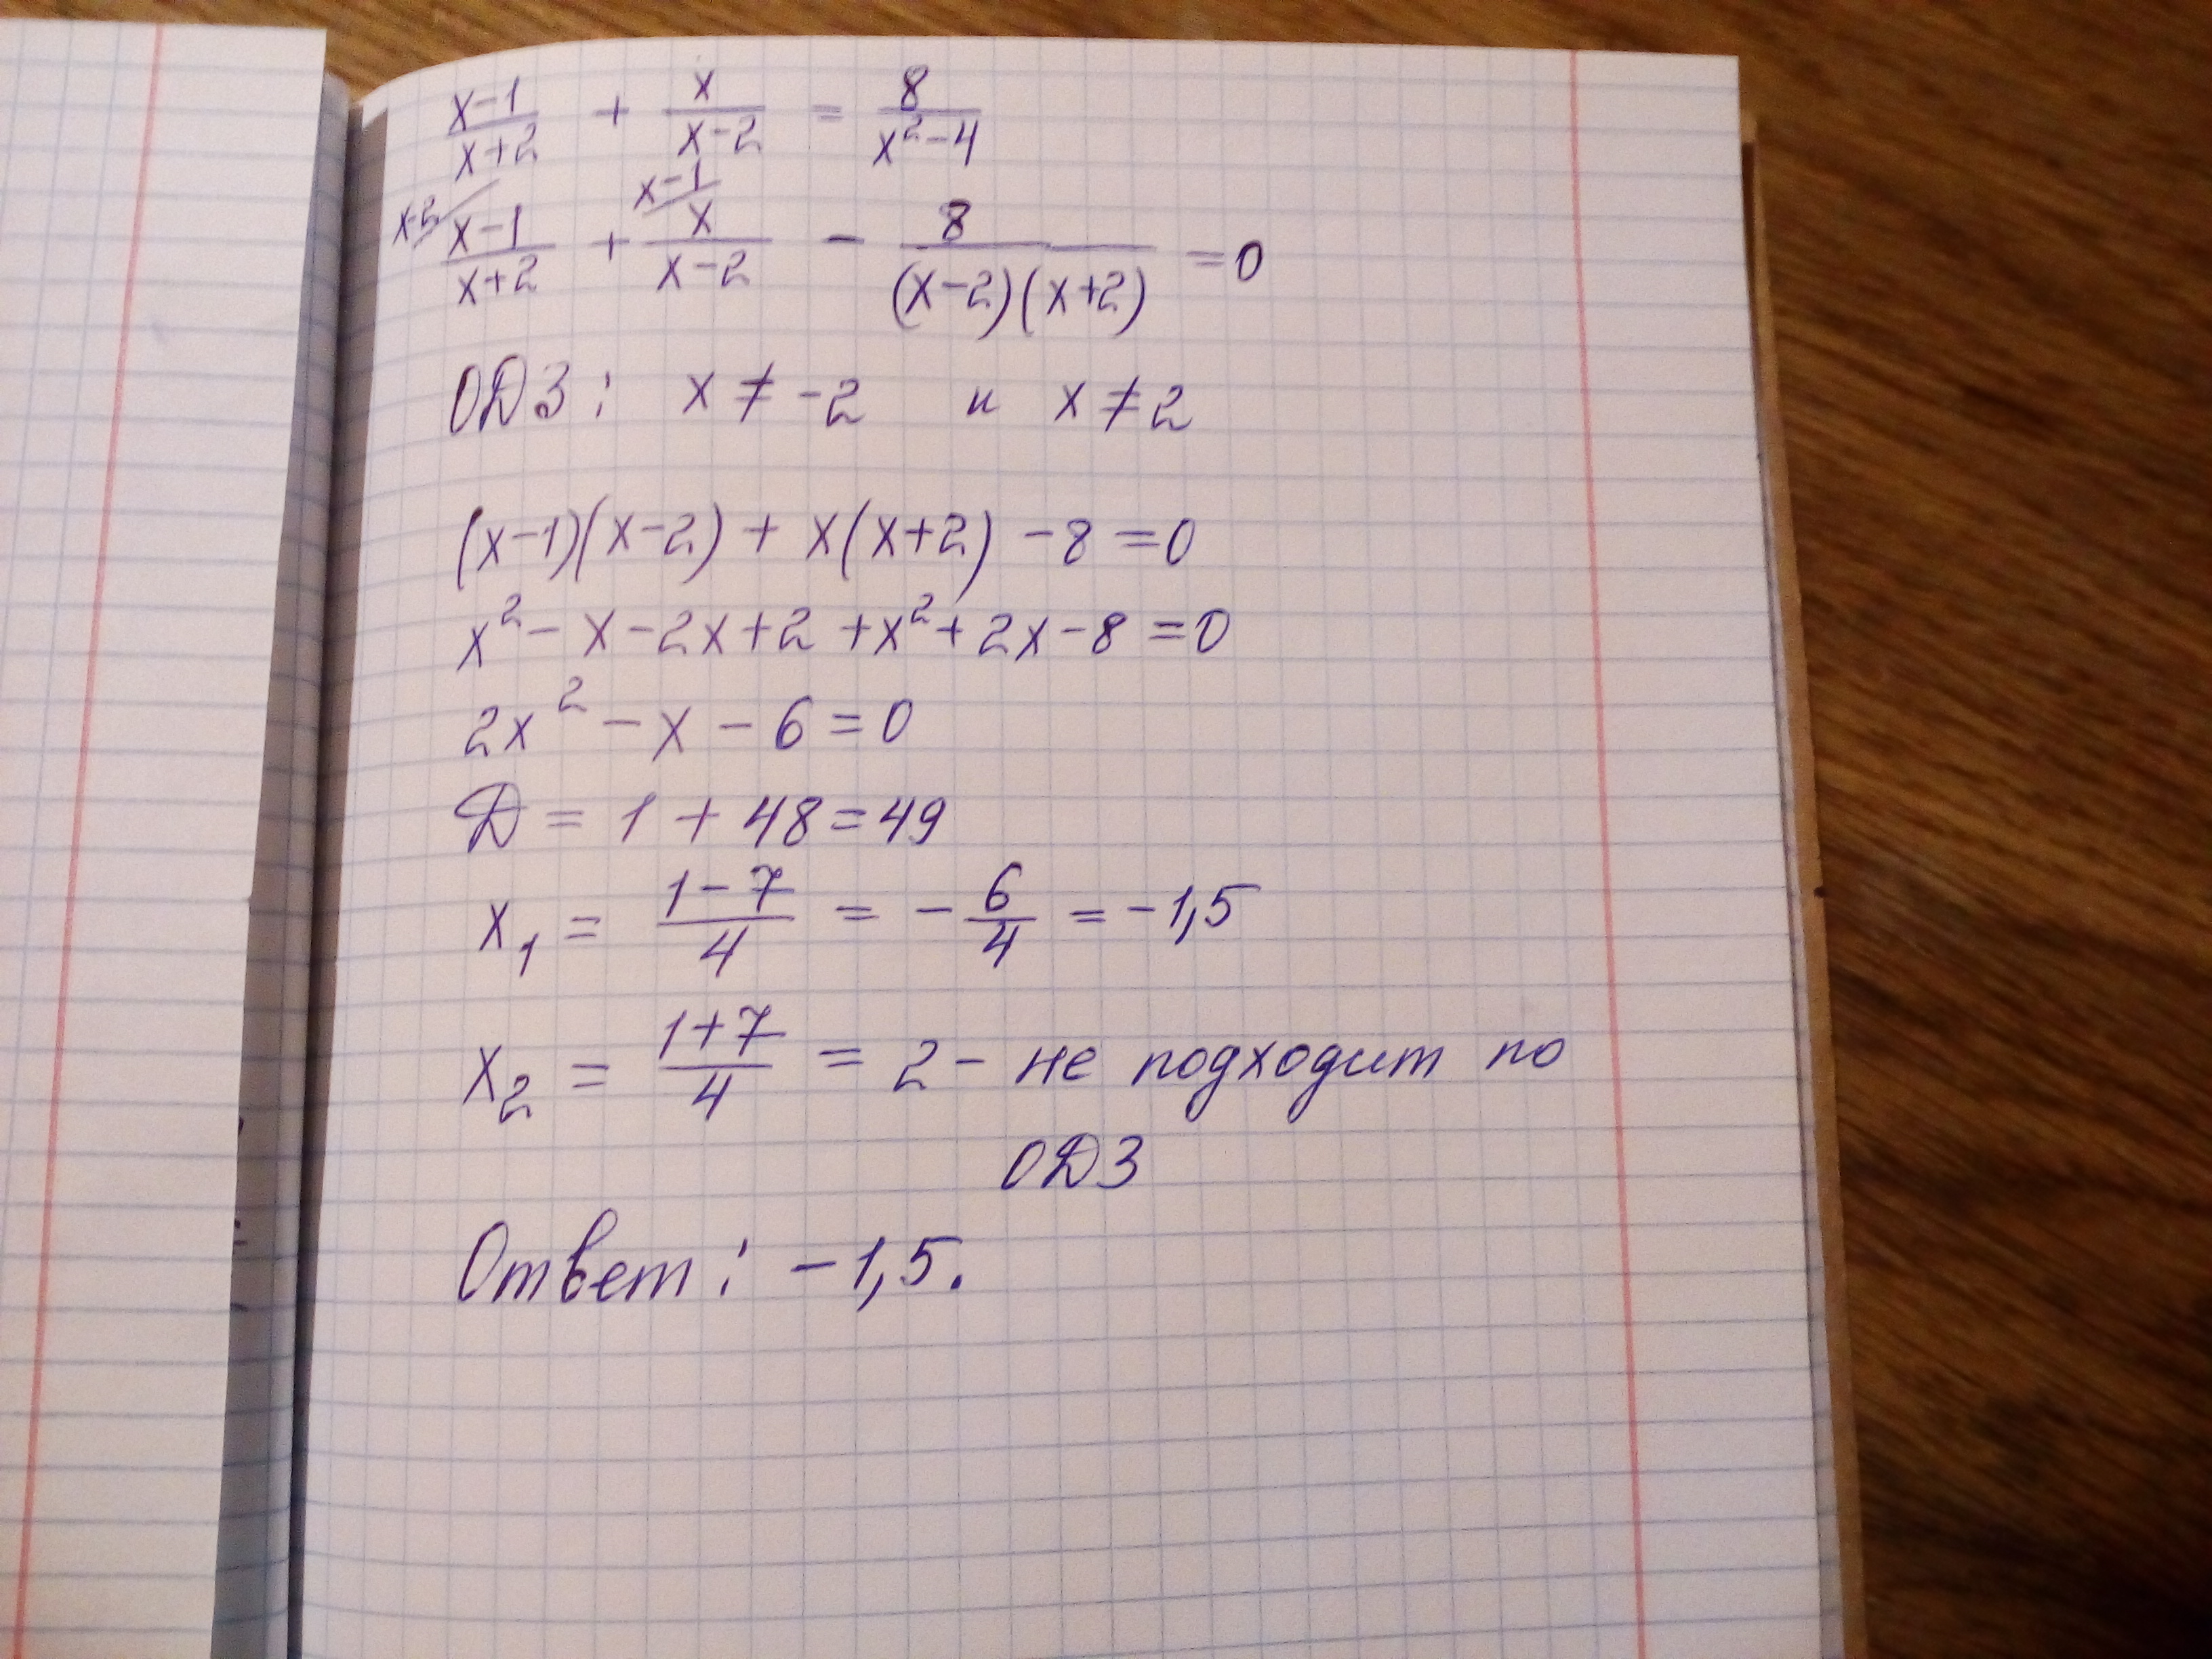 x-1/x+2 + x/x-2 = 8/x²-4
x-2/ x-1/
x-1/x+2 + x/x-2 - 8/(x-2)(x+2) =0
ОДЗ: x ≠ -2 и x ≠ 2
(x-1)(x-2) + x(x+2) -8 =0
x² - x - 2x + 2 + x² + 2x - 8 = 0
2x² - x - 6 = 0
Д = 1 + 48 = 49
x₁ = 1-7/4 = - 6/4 = -1,5
x₂ = 1+7/4 = 2 - не подходит по
ОДЗ
Ответ: -1,5.